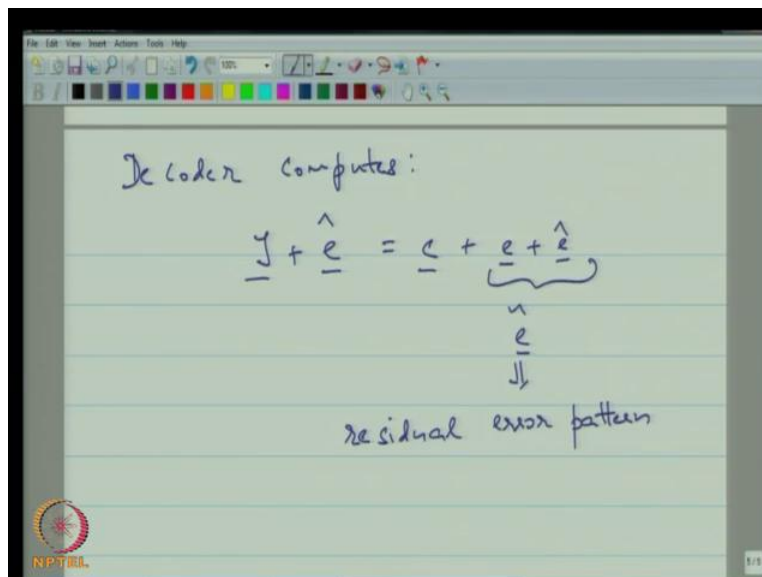 File Edit View Insert Actions Tools Help
100%
B I
Decoder computes:
y + ê = c + e + ê
ẽ
⇓
residual error pattern
NPTEL
5/5